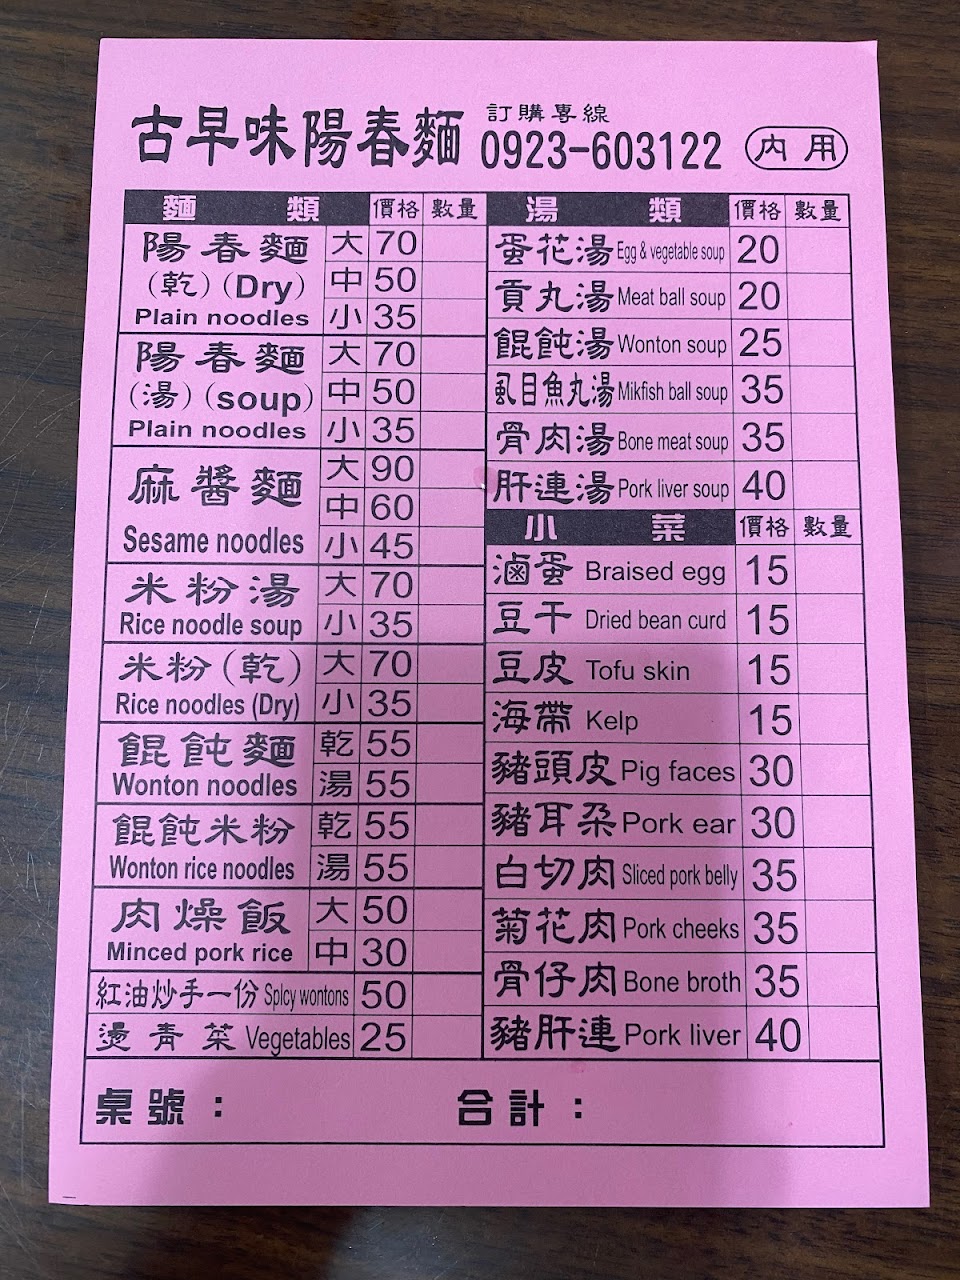 古早味陽春麵
訂購專線
0923-603122
內用
麵類 價格 數量
陽春麵 大 70
(乾)(Dry) 中 50
Plain noodles 小 35
陽春麵 大 70
(湯)(soup) 中 50
Plain noodles 小 35
麻醬麵 大 90
中 60
Sesame noodles 小 45
米粉湯 大 70
Rice noodle soup 小 35
米粉(乾) 大 70
Rice noodles (Dry) 小 35
餛飩麵 乾 55
Wonton noodles 湯 55
餛飩米粉 乾 55
Wonton rice noodles 湯 55
肉燥飯 大 50
Minced pork rice 中 30
紅油炒手一份 Splcy wontons 50
燙青菜 Vegetables 25
湯類 價格 數量
蛋花湯 Egg & vegetable soup 20
貢丸湯 Meat ball soup 20
餛飩湯 Wonton soup 25
虱目魚丸湯 Mikfish ball soup 35
骨肉湯 Bone meat soup 35
肝連湯 Pork liver soup 40
小菜 價格 數量
滷蛋 Braised egg 15
豆干 Dried bean curd 15
豆皮 Tofu skin 15
海帶 Kelp 15
豬頭皮 Pig faces 30
豬耳朵 Pork ear 30
白切肉 Sliced pork belly 35
菊花肉 Pork cheeks 35
骨仔肉 Bone broth 35
豬肝連 Pork liver 40
桌號： 合計：